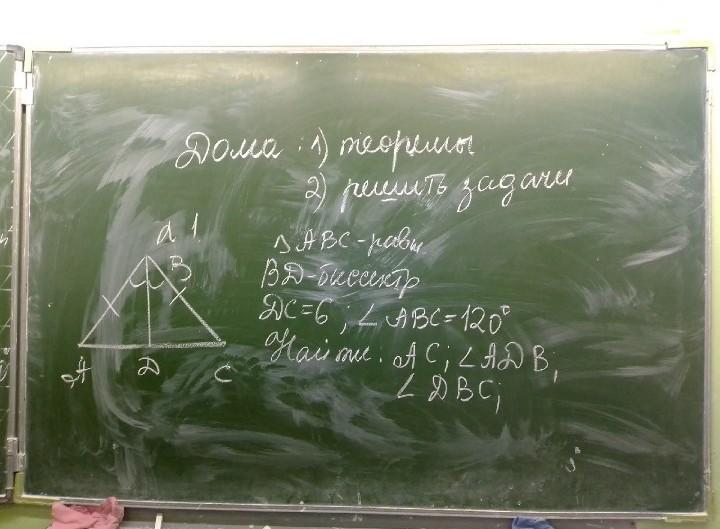 Дома: 1) теоремы
2) решить задачи
d 1.
△ ABC - равн
BD - биссектр
DC = 6 ; ∠ ABC = 120°
Найти: AC; ∠ADB,
∠ DBC;
B
A D C